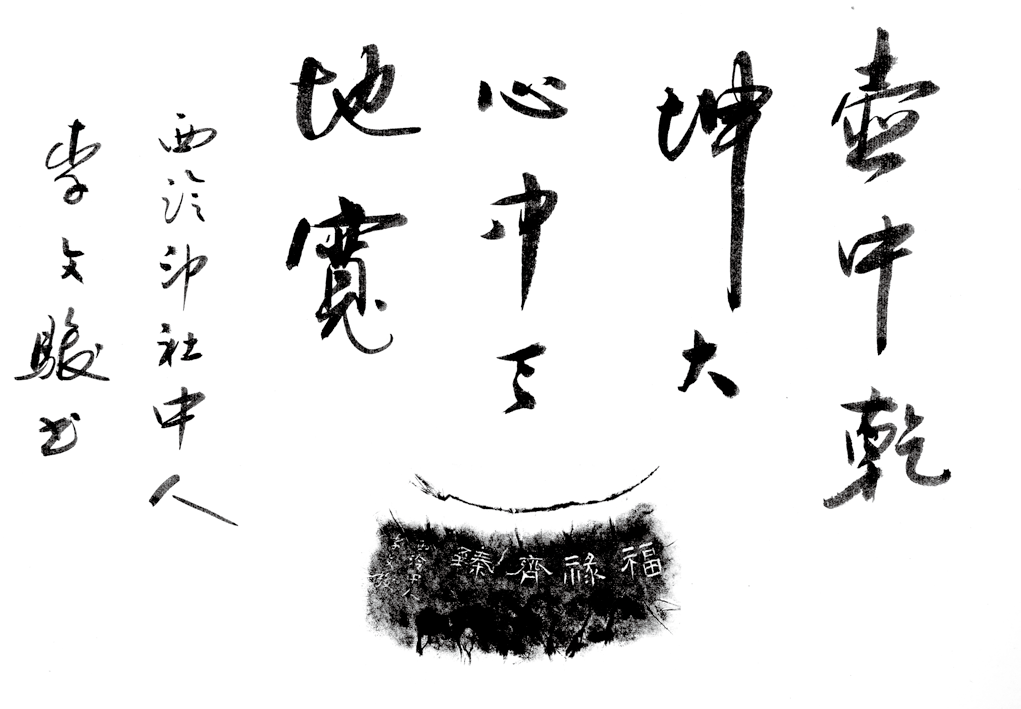 壺中乾
坤大
心中天
地寬
西泠印社中人
李文駿书
福祿齊臻
西泠中人